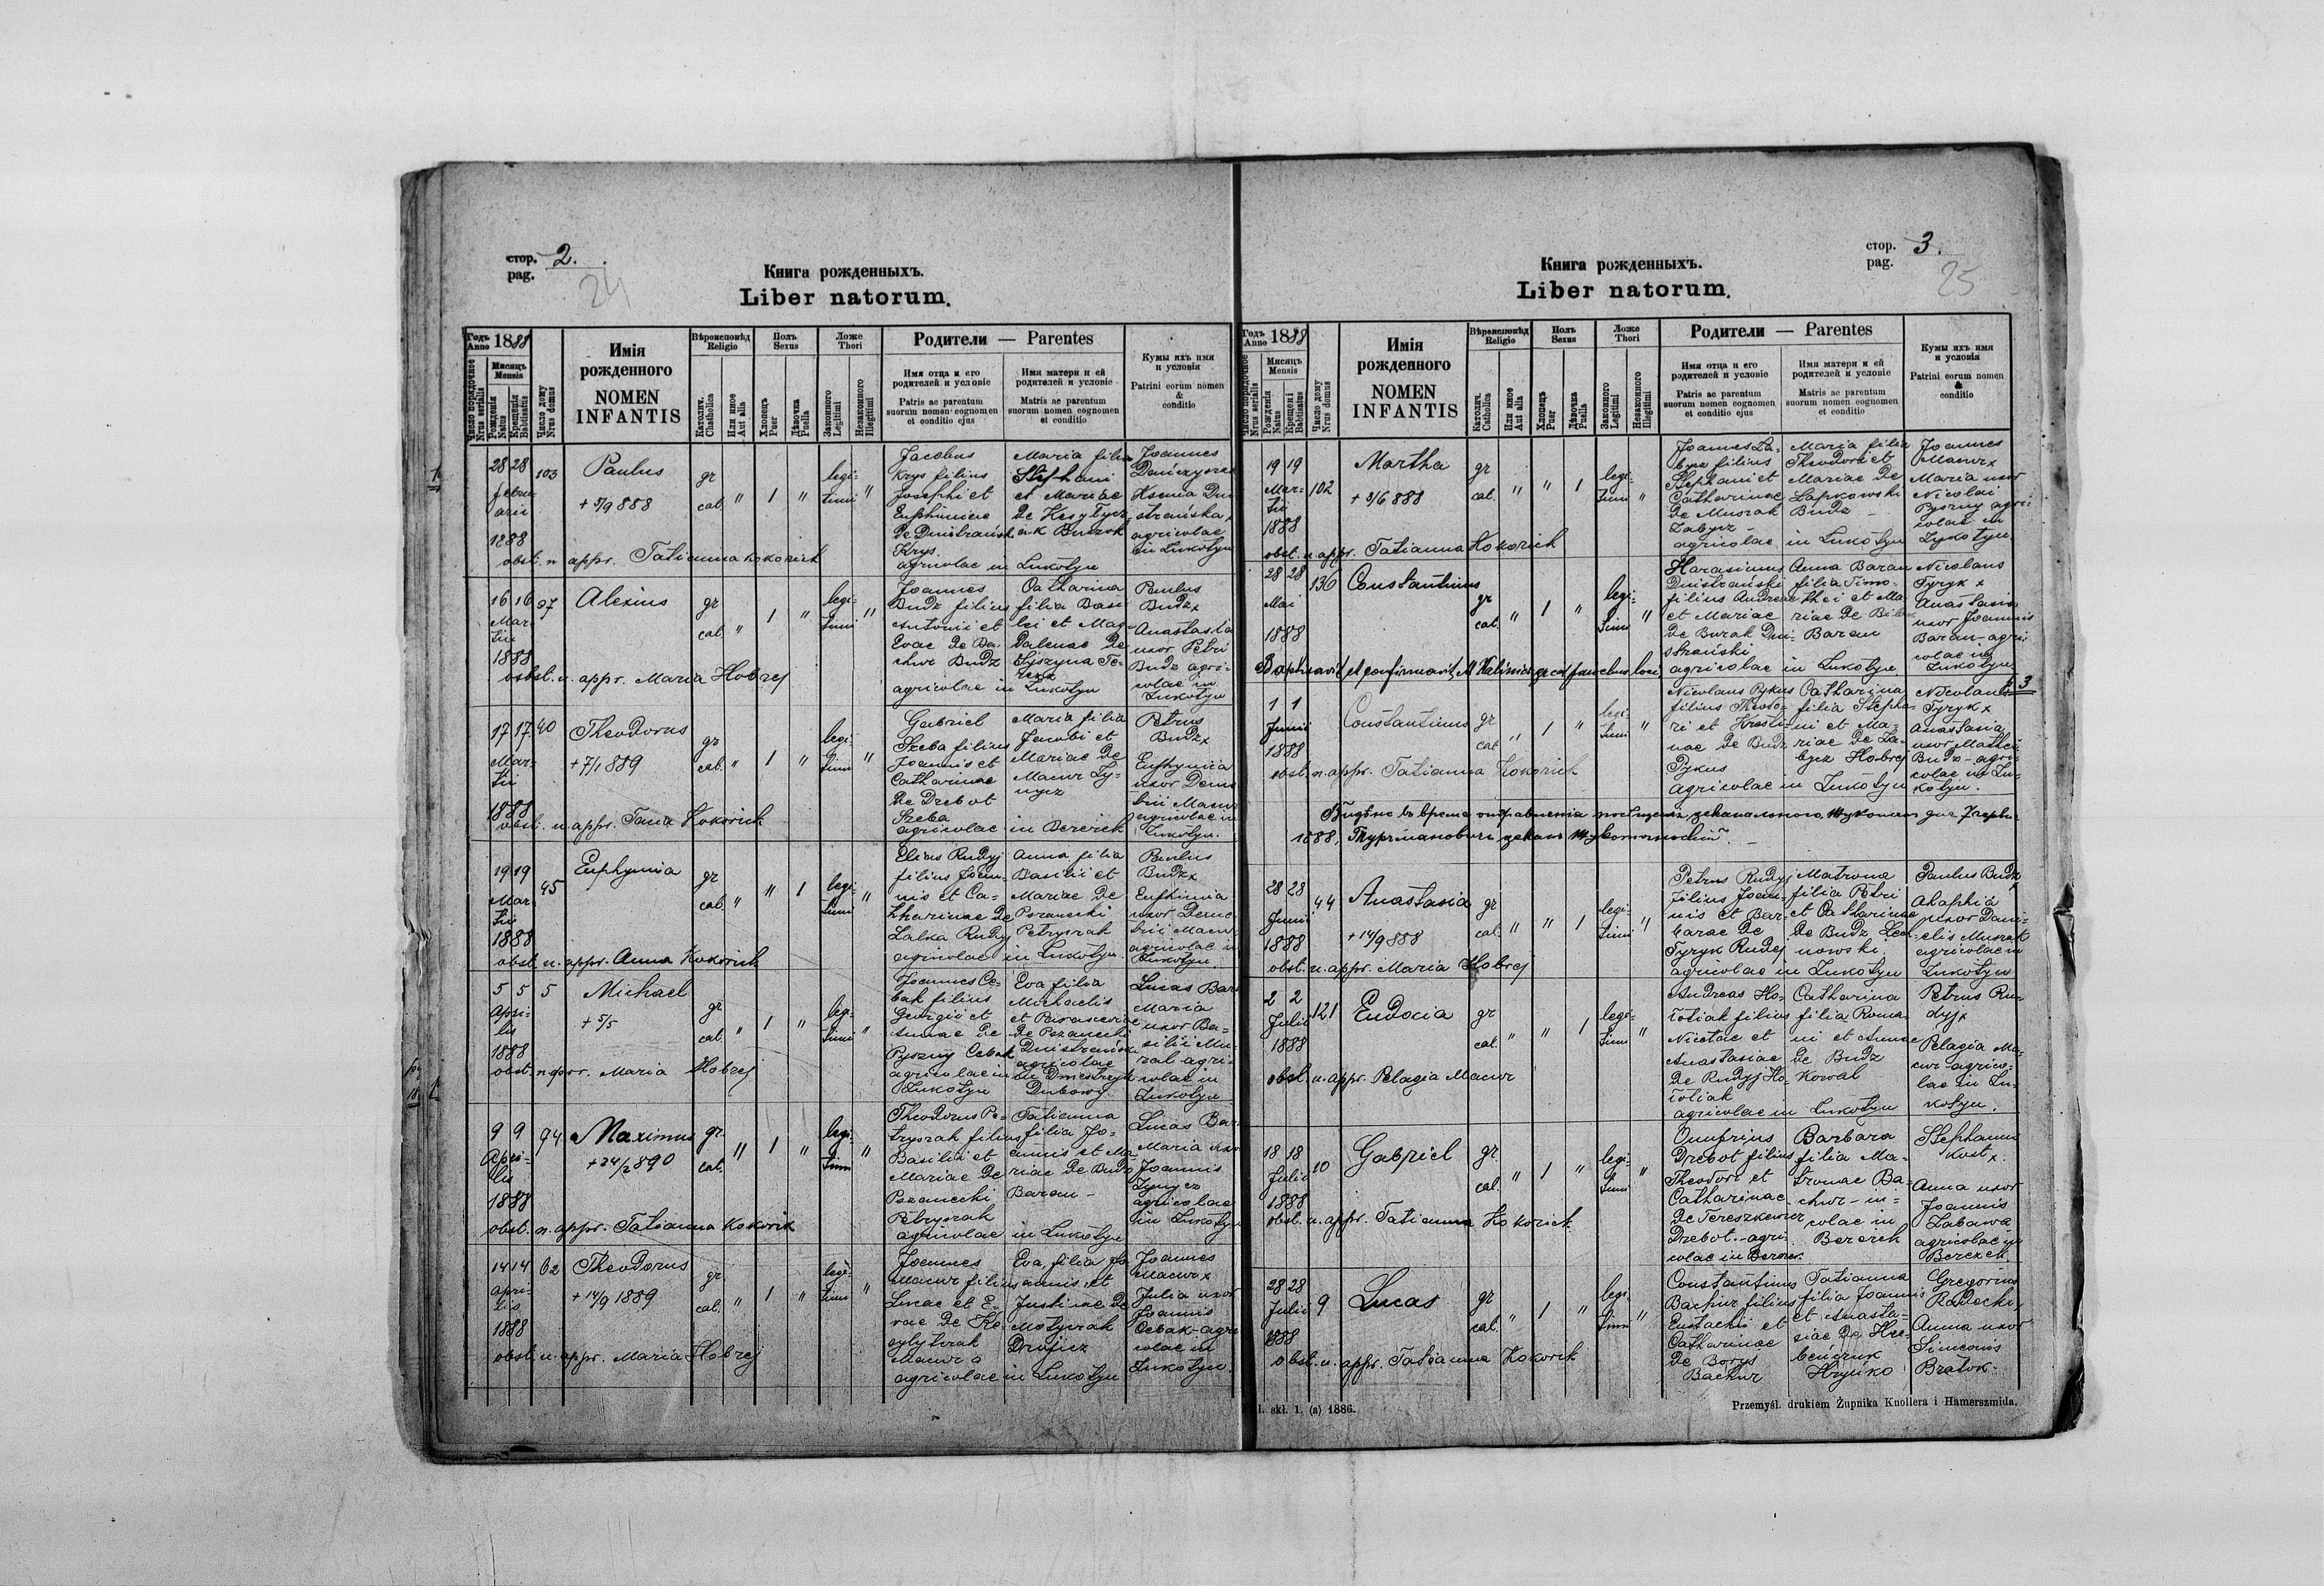 стор. 2.
pag.
24
Книга рожденныхъ.
Liber natorum.
Годъ Anno 1888
Число порядочное Nrus serialis
Мѣсяцъ Mensis
Рожденія Natus
Крещенія Babtisatus
Число дому Nrus domus
Имія рожденного
NOMEN INFANTIS
Вѣроисповѣд Religio
Католич. Chatholica
Или иное Aut alia
Полъ Sexus
Хлопецъ Puer
Дѣвочка Puella
Ложе Thori
Законного Legitimi
Незаконного Illegitimi
Родители — Parentes
Имя отца и его родителей и условіе
Patris ac parentum suorum nomen cognomen et conditio ejus
Имя матери и ей родителей и условіе
Matris ac parentum suorum nomen cognomen et conditio
Кумы ихъ имя и условія
Patrini eorum nomen & conditio
28 28 103 Paulus
februarii
1888
+ 5/9 888
gr cat. " 1 " legitimi "
Jacobus
Krys filius
Josephi et
Euphimiae
De
Krys
agricolae in Lukotyn
Maria filia
Stephani
et Mariae
De
Joannes
Ksenia
agricolae
in Lukotyn
obst. n appr. Tatianna Kokorich
16 16 97 Alexius
Martii
1888
gr cat. " 1 " legitimi "
Joannes
Budz filius
Antonii et
Evae De Ba-
chur Budz
agricolae in Lukotyn
Catharina
filia Basi-
lei et Mag-
dalenae De
Paulus
Budz x
Anastasia
uxor Petri
Budz agri-
colae in
Lukotyn
obst. n. appr. Maria Hobrej
17 17 40 Theodorus
Martii
1888
+ 7/1 889
gr cat. " 1 " legitimi "
Gabriel
Szeba filius
Joannis et
Catharinae
De Drebot
Szeba
agricolae in Berezek
Maria filia
Jacobi et
Mariae De
Macur Zy-
nycz
Petrus
Budz x
Euphymia
uxor Deme-
trii Macur
agricolae in
Lukotyn.
obst. n. appr. Tatia Kokorich
19 19 45 Euphymia
Martii
1888
gr cat. " " 1 legitimi "
Elias Rudyj
filius Joan-
nis et Ca-
tharinae De
Lalka Rudy
agricolae in Lukotyn.
Anna filia
Basilii et
Mariae De
Pszanecki
Petryszak
Paulus
Budz x
Euphimia
uxor Deme-
trii Macur
agricolae in
Lukotyn.
obst. n. appr. Anna Kokorich
5 5 5 Michael
Aprilis
1888
+ 5/5
gr cat. " 1 " legitimi "
Joannes Ce-
bak filius
Georgii et
Annae De
Pyszny Cebak
agricolae in
Lukotyn
Eva filia
Michaelis
et Parasceviae
De Pszanecki
Dnistrański
agricolae
Dubowy.
Lucas Bar
Maria
uxor Ba-
silii Mu-
szak agri-
colae in
Lukotyn
obst. n appr. Maria Hobrej
9 9 94 Maximus
Aprilis
1888
+ 24/2 890
gr. cat. " 1 " legitimi "
Theodorus Pe-
tryszak filius
Basilii et
Mariae De
Pszanecki
Petryszak
agricolae in Lukotyn
Tatianna
filia Jo-
annis et Ma-
riae De Budz
Baran –
Lucas Bar
Maria uxor
Joannis
Zynycz
agricolae
in Lukotyn
obst. n. appr. Tatianna Kokorik
14 14 62 Theodorus
Aprilis
1888
+ 14/9 1889
gr. cat. " 1 " legitimi "
Joannes
Macur filius
Lucae et E-
vae De Ke-
Macur
agricolae in Lukotyn
Eva filia Jo-
annis et
Justinae De
Joannes
Macur x
Julia uxor
Joannis
Cebak agri-
colae in
Lukotyn.
obst. n. appr. Maria Hobrej
стор. 3.
pag.
25
Книга рожденныхъ.
Liber natorum.
Годъ Anno 1888
Число порядочное Nrus serialis
Мѣсяцъ Mensis
Рожденія Natus
Крещені Babtisatus
Число дому Nrus domus
Имія рожденного
NOMEN INFANTIS
Вѣроисповѣд Religio
Католич. Catholica
Или иное Aut alia
Полъ Sexus
Хлопецъ Puer
Дѣвочка Puella
Ложе Thori
Законного Legitimi
Незаконного Illegitimi
Родители — Parentes
Имя отца и его родителей и условіе
Patris ac parentum suorum nomen cognomen et conditio ejus
Имя матери и ей родителей и условіе
Matris ac parentum suorum nomen cognomen et conditio
Кумы ихъ имя и условія
Patrini eorum nomen & conditio
19 19 102 Martha
Martii
1888
+ 3/6 888
gr cat. " " 1 legitimi "
Joannes Za-
bycz filius
Stephani et
Catharinae
De Muszak
Zabycz –
agricolae in Lukotyn
Maria filia
Theodori et
Mariae De
Lapkowski
Budz –
Joannes
Macur x
Maria uxor
Nicolai
Pyszny agri-
colae in
Lykotyn
obst. n appr. Tatianna Kokorich
28 28 136 Constantinus
Mai
1888
gr cat. " 1 " legitimi "
Harasimus
Dnistrański
filius Andreae
et Mariae
De Burak Dni-
strański
agricolae in Lukotyn.
Anna Baran
filia Timo-
thei et Ma-
riae De
Baran
Nicolaus
Tyryk x
Anastasia
uxor Joannis
Baran – agri-
colae in
Lukotyn
Baptisavit et confirmavit, M Kalinier gr cat parochus loci
1 1 Constantinus
Junii
1888
gr cat " 1 " legitimi "
Nicolaus Pykus
filius Theodo-
ri et Kresti-
nae De Budz
Pykus
agricolae in Lukotyn
Catharina
filia Stepha-
ni et Ma-
riae De Za-
bycz Hobrej
Nicolaus
Tyryk x
Anastasia
uxor Mathei
Budz – agri-
colae in Lu-
kotyn.
3
obst. n. appr. Tatianna Kokorich
1888,
28 28 44 Anastasia
Junii
1888
+ 14/9 888
gr cat. " " 1 legitimi "
Petrus Rudyj
filius Joan-
nis et Bar-
barae De
Tyryk Rudej
agricolae in Lukotyn
Matrona
filia Petri
et Catharinae
De Budz
Paulus Budz x
Ahaphia
uxor Dani-
elis Muszak
agricolae in
Lukotyn
obst. n. appr. Maria Hobrej
2 2 121 Eudocia
Julii
1888
gr cat. " " 1 legitimi "
Andreas Ho-
łotiak filius
Nicolai et
Anastasiae
De Rudyj Ho-
łotiak
agricolae in Lukotyn
Catharina
filia Roma-
ni et Annae
De Budz
Kowal
Petrus Ru-
dyj x
Pelagia Ma-
cur – agrico-
lae in Lu-
kotyn.
obst. n. appr. Pelagia Macur
18 18 10 Gabriel
Julii
1888
gr. cat. " 1 " legitimi "
Onufrius
Drebot filius
Theodori et
Catharinae
De Tereszkewicz
Drebot – agri-
colae in Berezek
Barbara
filia Ma-
tronae Ba-
chur – in-
colae in
Berezek
Stephanus
Kost x.
Anna uxor
Joannis
Zabawa
agricolae in
Berezek.
obst. n. appr. Tatianna Kokorich
28 28 9 Lucas
Julii
1888
gr cat. " 1 " legitimi "
Constantinus
Bachur filius
Eustachii et
Catharinae
De Borys
Bachur
Tatianna
filia Joannis
et Anasta-
siae De Hre-
Hryńko
Gregorius
Radecki x
Anna uxor
Simeonis
Bratok.
obst. n. appr. Tatianna Kokorik
I. skł. 1. (a) 1886.
Przemyśl. drukiem Żupnika Knollera i Hamerszmida.